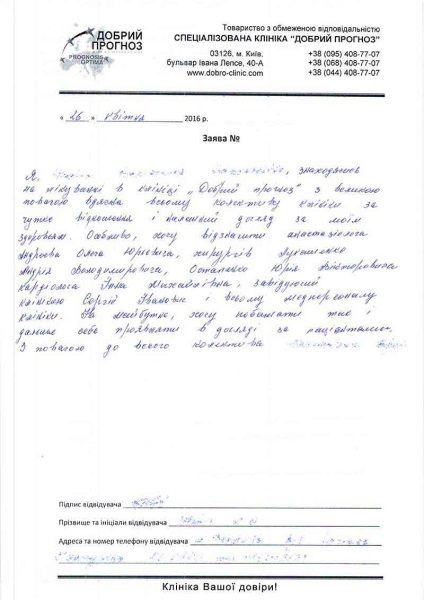 ДОБРИЙ
ПРОГНОЗ
PROGNOSIS
OPTIMA
Товариство з обмеженою відповідальністю
СПЕЦІАЛІЗОВАНА КЛІНІКА "ДОБРИЙ ПРОГНОЗ"
03126, м. Київ,
бульвар Івана Лепсе, 40-А
www.dobro-clinic.com
+38 (095) 408-77-07
+38 (068) 408-77-07
+38 (044) 408-77-07
« 26 » квітня 2016 р.
Заява №
Я, знаходячись
на лікуванні в клініці „Добрий прогноз" з великою
повагою вдячна всьому колективу клініки за
чутке відношення і належний догляд за моїм
здоровям. Особливо, хочу відзначити анастезіолога
Андрєєва Олега Юрієвича, хирургів Лукашенко
Андрія Володимировича, Остапенко Юрія Вікторовича
кардіолога Інна Михайлівна, завідуючий
клінікою Сергій Іванович і всьому медперсоналу
клініки. На майбутнє, хочу побажати так і
дальше себе проявляти в догляді за пацієнтами.
З повагою до всього колектива
Підпис відвідувача
Прізвище та ініціали відвідувача
Адреса та номер телефону відвідувача
Клініка Вашої довіри!